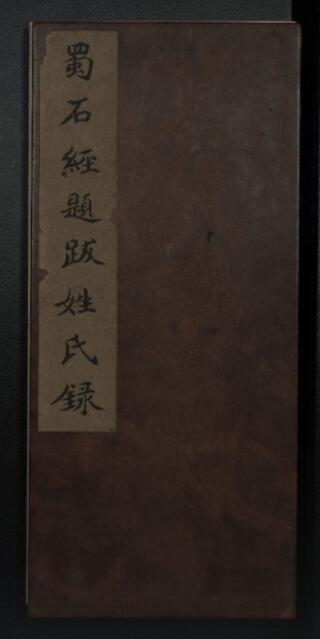 蜀石經題跋姓氏録